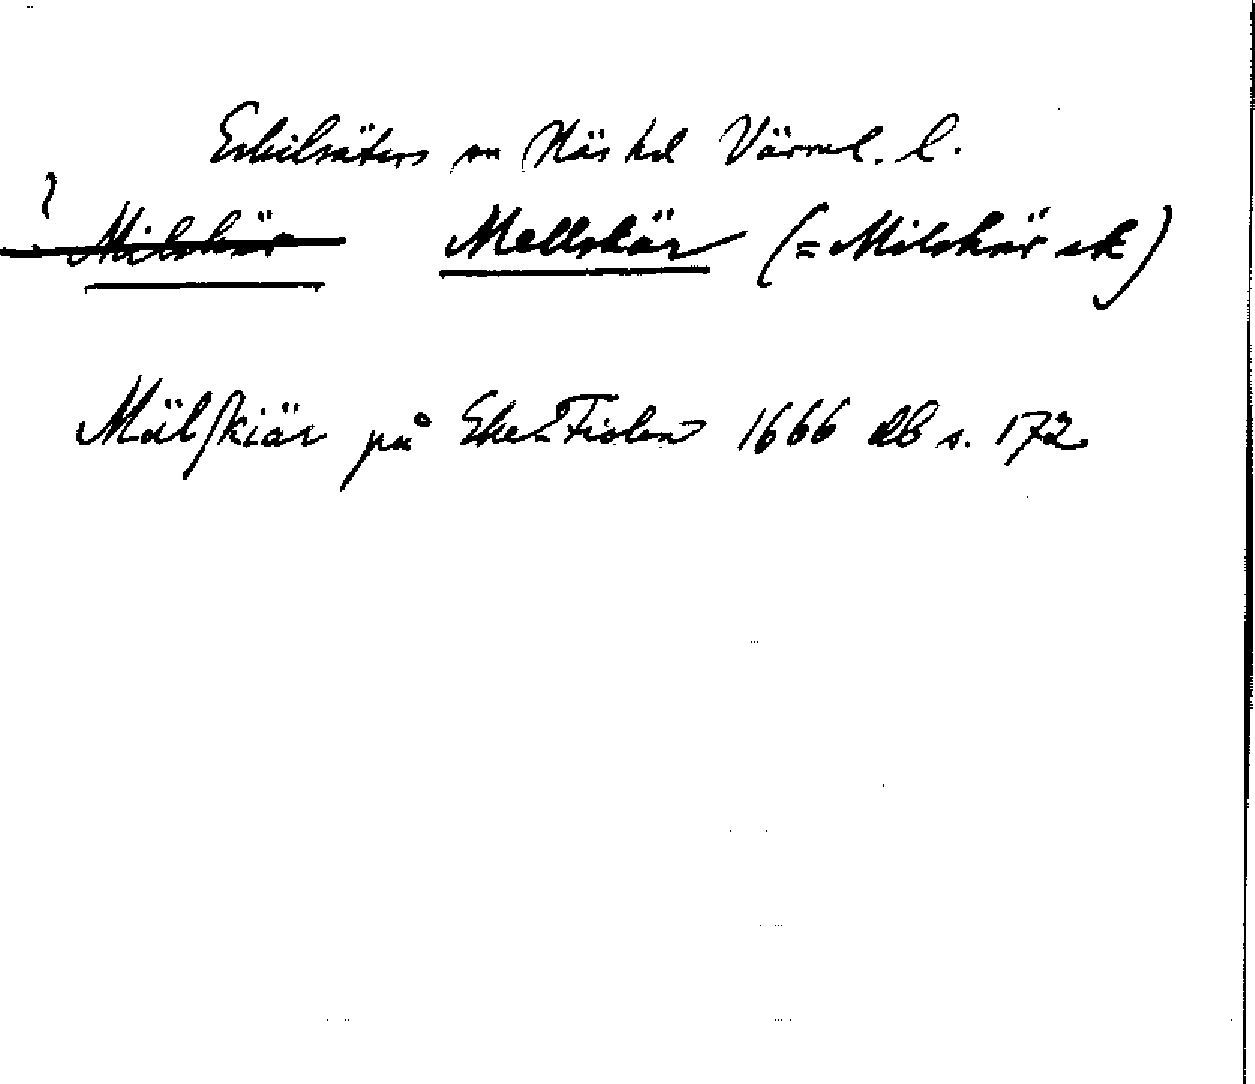 Eskilsäters sn Näs hd Värml. l.
? Milskär Mellskär (= Milskär ek)
Mälskiär på Eke Fiolen 1666 db s. 172